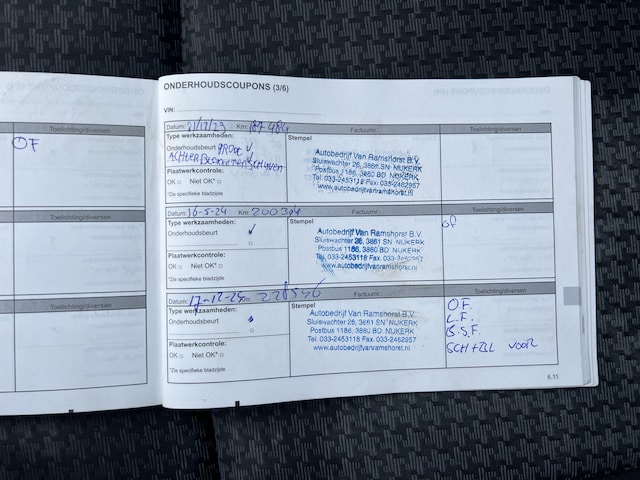 ONDERHOUDSCOUPONS (3/6)
VIN:
Toelichting/diversen
OF
Datum: 21/12/23 Km: 187484 Factuurnr.: Toelichting/diversen
Type werkzaamheden:
Onderhoudsbeurt
ACHTER BLOKKEN SCHIJVEN
Plaatwerkcontrole:
OK □ Niet OK* □
*Zie specifieke bladzijde
Stempel
Autobedrijf Van Ramshorst B.V.
Sluiswachter 26, 3861 SN NIJKERK
Postbus 1186, 3860 BD NIJKERK
Tel. 033-2453118 Fax. 033-2462957
www.autobedrijfvanramshorst.nl
Toelichting/diversen
Datum: 16-5-24 Km: Factuurnr.: Toelichting/diversen
Type werkzaamheden:
Onderhoudsbeurt ✓
Plaatwerkcontrole:
OK □ Niet OK* □
*Zie specifieke bladzijde
Stempel
Autobedrijf Van Ramshorst B.V.
Sluiswachter 26, 3861 SN NIJKERK
Postbus 1186, 3860 BD NIJKERK
Tel. 033-2453118 Fax. 033-2462957
www.autobedrijfvanramshorst.nl
of
Toelichting/diversen
Datum: 17-12-24 Factuurnr.: Toelichting/diversen
Type werkzaamheden:
Onderhoudsbeurt
Plaatwerkcontrole:
OK □ Niet OK* □
*Zie specifieke bladzijde
Stempel
Autobedrijf Van Ramshorst B.V.
Sluiswachter 26, 3861 SN NIJKERK
Postbus 1186, 3860 BD NIJKERK
Tel. 033-2453118 Fax. 033-2462957
www.autobedrijfvanramshorst.nl
O.F.
L.F.
B.S.F.
SCH+BL VOOR
6.11